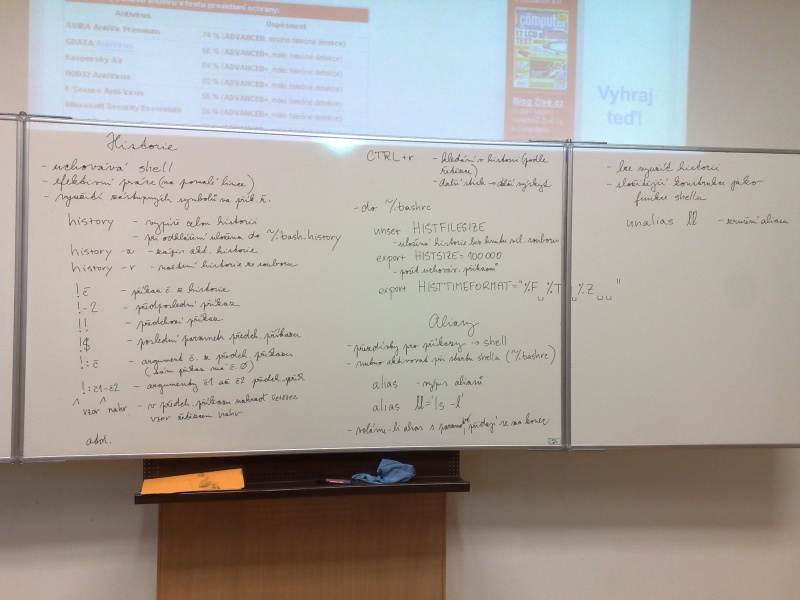 antiviru a testu proaktivní ochrany:
Antivirus Úspěšnost
AVIRA AntiVir Premium 74 % (ADVANCED, mnoho falešné detekce)
GDATA AntiVirus 66 % (ADVANCED+, málo falešné detekce)
Kaspersky AV 64 % (ADVANCED+, málo falešné detekce)
NOD32 AntiVirus 60 % (ADVANCED+, málo falešné detekce)
F-Secure Anti-Virus 56 % (ADVANCED+, málo falešné detekce)
Microsoft Security Essentials 56 % (ADVANCED+, málo falešné detekce)
computer
Blog Živě.cz
Vyhraj
teď!
Historie
- uchovává shell
- efektivní práce (na pomalé lince)
- využití zástupných symbolů na přík. ř.
history - vypíše celou historii
- při odhlášení uložena do ~/.bash_history
history -a - zápis akt. historie
history -r - načtení historie ze souboru
!č - příkaz č. z historie
!-2 - předposlední příkaz
!! - předchozí příkaz
!$ - poslední parametr předch. příkazu
!:č - argument č. z předch. příkazu
(sám příkaz má č. 0)
!:č1-č2 - argumenty č1 až č2 předch. přík.
^vzor^nahr. - v předch. příkazu nahradí řetězec
vzor řetězcem nahr
atd.
CTRL+r - hledání v historii (podle
řetězce)
- další stisk → další výskyt
- do ~/.bashrc
unset HISTFILESIZE
- uložená historie bez limitu vel. souboru
export HISTSIZE=100000
- počet uchováv. příkazů
export HISTTIMEFORMAT="%F␣%T␣%Z␣␣"
Aliasy
- přezdívky pro příkazy → shell
- nutno aktivovat při startu shellu (~/.bashrc)
alias - výpis aliasů
alias ll='ls -l'
- voláme-li alias s parametry, přidají se na konec
- lze využít historii
- složitější konstrukce jako
funkce shellu
unalias ll - zrušení aliasu